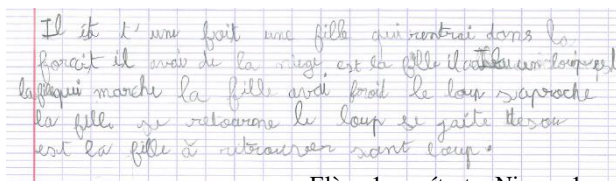 Il ét t'une foit une fille qui rentrai dans la
forait il avai de la niege est la fille il un loup est
la fille qui marche la fille avai froid le loup s'aproche
la fille se retourne le loup se gaite desou
est la fille à retrouver sont loup.